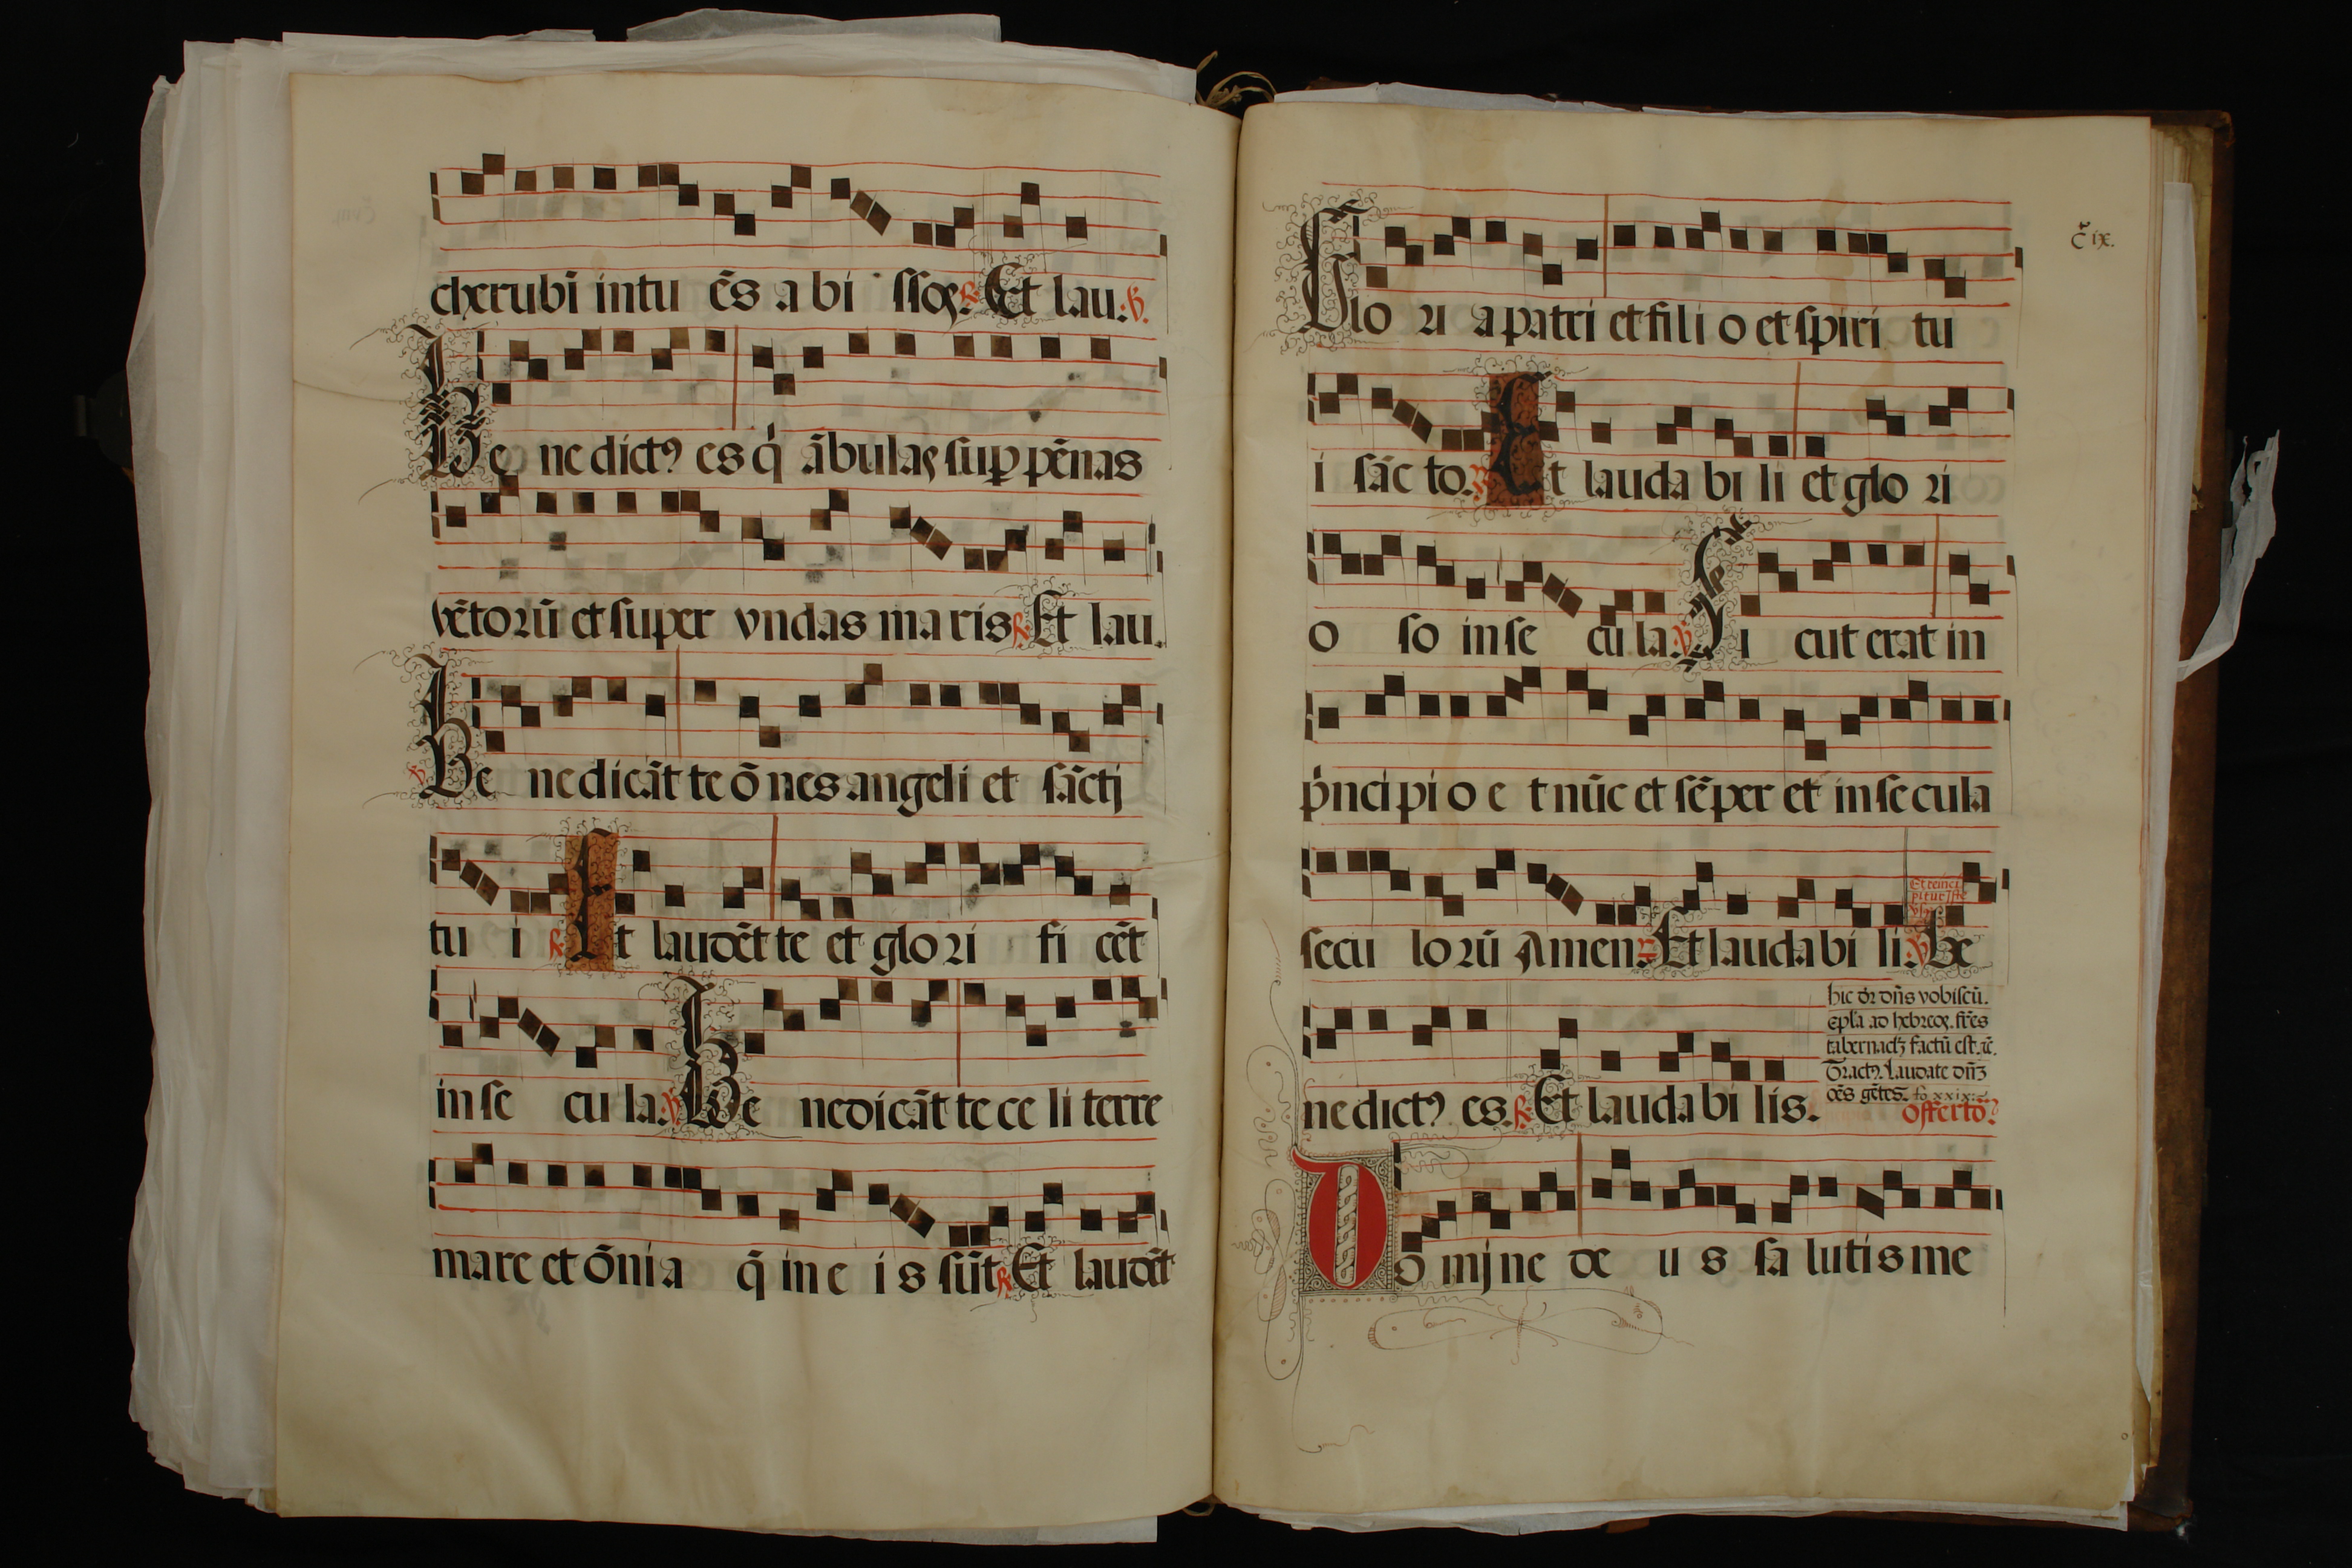 cherubĩ intu ẽs a bi ssoꝝ ℟. Et lau. ℣.
Be ne dictꝰ es q̇ ãbulas sup̲ pẽnas
vẽtorũ et super vndas maris ℟. Et lau.
℣ Be ne dicãt te õ nes angeli et sãctj
tu i ℟. Et laudẽt te et glo ri fi cẽt
in se cu la: ℣ Be nedicãt te ce li terre
mare et õni a q̃ in e i s sũt ℟. Et laudẽt
c̃ ix.
Glo ri a patri et fi li o et spiri tu
i sãc to. ℟ Et lauda bi li et glo ri
o so in se cu la: ℣ Si cut erat in
pṙncipi o e t nũc et sẽper et in se cula
Et reinci
pitur iste
secu lo rũ Amen. ℟ Et lauda bi li. ℣ Be
ne dictꝰ es. ℟. Et lauda bi lis.
hic dr̃ dñs vobiscũ.
epl̃a ad hebreoꝝ. fr̃es
tabernacl̃ʒ factũ est. ⁊c̃.
Tractꝰ. Laudate dñʒ
oẽs gẽtes. fo xxix:
offerto?
Do mjne de u s sa lutis me